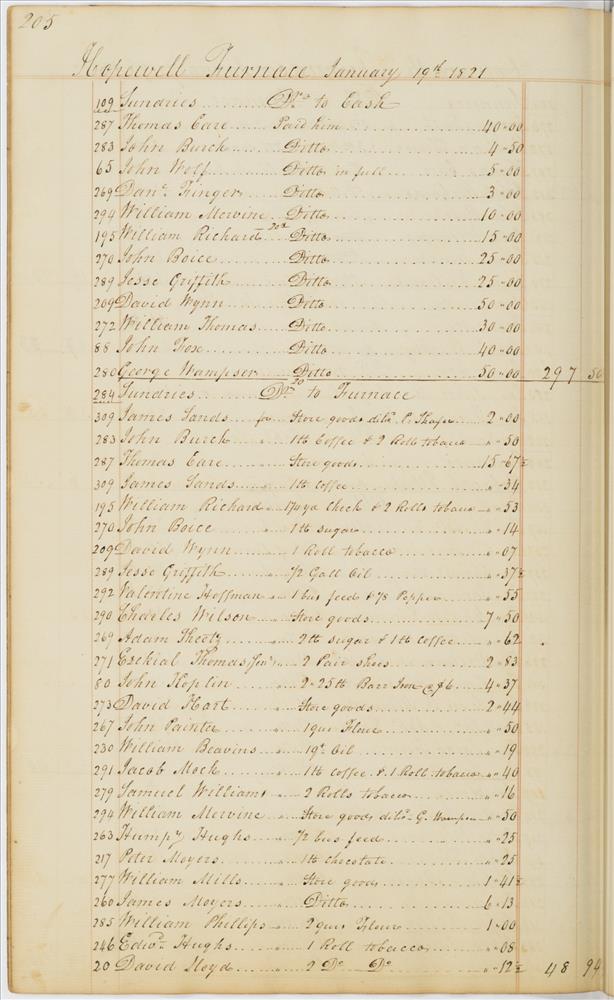 205
Hopewell Furnace January 19th 1821
109 Sundries Drs to Cash
287 Thomas Care Paid him 40"00
283 John Burch Ditto 4"50
65 John Wolf Ditto in full 5"00
269 Danl. Finger Ditto 3"00
294 William Mervine Ditto 10"00
195 William Richard Ditto 15"00
270 John Boice Ditto 25"00
289 Jesse Griffith Ditto 25"00
209 David Wynn Ditto 50"00
272 William Thomas Ditto 30"00
88 John Fox Ditto 40"00
280 George Wampser Ditto 50"00 297 50
284 Sundries Drs to Furnace
309 James Sands for Store goods 2"00
283 John Burch " 1 lb Coffee & 2 Rolls tobacco "50
287 Thomas Care Store goods 15"67½
309 James Sands " 1 lb Coffee "34
195 William Richard " 1¾ yd Check & 2 Rolls tobacco "53
270 John Boice " 1 lb sugar "14
209 David Wynn " 1 Roll tobacco "07
289 Jesse Griffith " 1/2 Gall Oil "37½
292 Valentine Hoffman " 1 bus feed & 1/8 Pepper "55
290 Charles Wilson Store goods 7"50
269 Adam 2 lb sugar & 1 lb Coffee "62
271 Ezekial Thomas Junr " 2 Pair shoes 2"83
80 John Hoplin " 2"25 lb Barr Iron @ $6 4"37
273 David Hart Store goods 2"44
267 John Painter " 1 qur Flour "50
230 William Beavins " 1 qt Oil "19
291 Jacob Mock 1 lb Coffee & 1 Roll tobacco "40
279 Samuel Williams " 2 Rolls tobacco "16
294 William Mervine Store goods "50
263 Humpy Hughs " 1/2 bus feed "25
217 Peter Moyers 1 lb Chocolate "25
277 William Mills " Store goods 1"41½
260 James Moyers " Ditto 6"13
285 William Phillips " 2 qurs Flour 1"00
246 Edwd Hughs " 1 Roll tobacco "08
20 David Lloyd " 2 Do Do "12½ 48 94